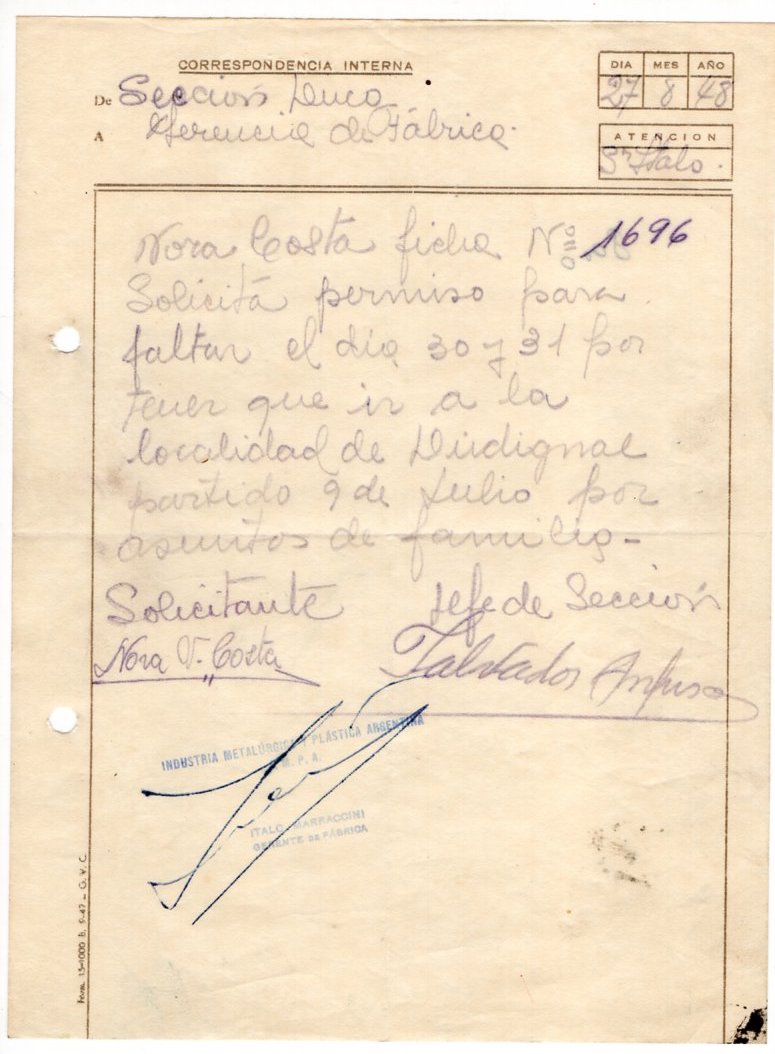 CORRESPONDENCIA INTERNA
DIA MES AÑO
27 8 48
De Sección Duco
A Gerencia de Fábrica.
ATENCION
Sr Italo.
Nora Costa ficha Nº 1696
Solicitá permiso para
faltar el día 30 y 31 por
tener que ir a la
localidad de Dudignac
partido 9 de Julio por
asuntos de familia -
Solicitante Jefe de Sección
Nora V. Costa Salvador
INDUSTRIA METALÚRGICA Y PLÁSTICA ARGENTINA
I.M.P.A.
ITALO MARRACCINI
GERENTE DE FÁBRICA
Form. 13-1000 B. 9-47 - G. V. C.